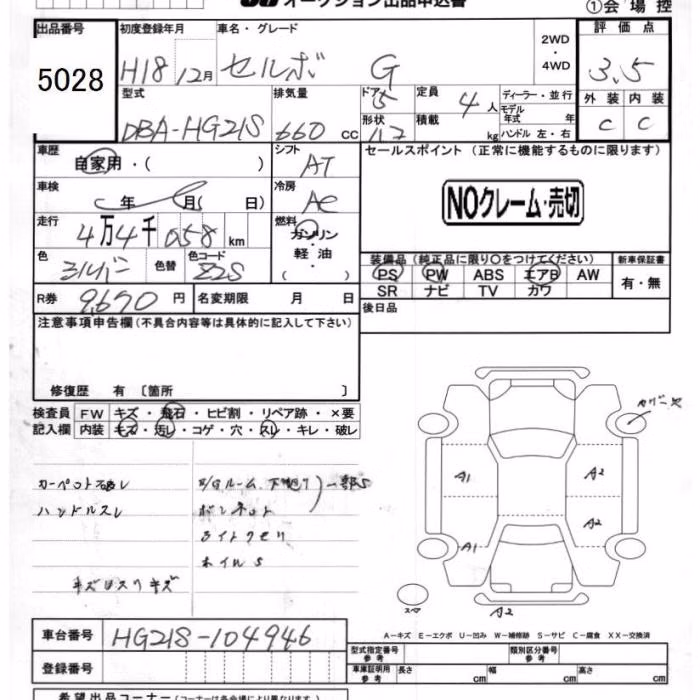 オークション出品申込書
①会場控
出品番号 初度登録年月 車名・グレード 2WD・4WD 評価点
5028 H18 12月 セルボ G 3.5
型式 排気量 ドア 定員 ディーラー・並行 外装 内装
DBA-HG21S 660cc 5 4人 モデル年式 年 C C
形状 積載 kg ハンドル 左・右
車歴 シフト セールスポイント (正常に機能するものに限ります)
自家用・( ) AT
車検 年 月( 日) 冷房 AC NOクレーム・売切
走行 4万4千058km 燃料 ガソリン・軽油・( )
色 シルバー 色替 色コード Z2S
装備品 (純正品に限り○をつけてください) 新車保証書
PS PW ABS エアB AW 有・無
SR ナビ TV カワ
R券 9,670円 名変期限 月 日 後日品
注意事項申告欄(不具合内容等は具体的に記入して下さい)
修復歴 有 〔箇所 〕
検査員 FW キズ・飛石・ヒビ割・リペア跡・×要
記入欄 内装 キズ・汚レ・コゲ・穴・スレ・キレ・破レ
カーペット破レ
ハンドルスレ
E/Gルーム、下廻り 一部S
ボンネット
ライトクモリ
ホイルS
A1
A2
A2
A1
スペア
A2
A-キズ E-エクボ U-凹み W-補修跡 S-サビ C-腐食 XX-交換済
車台番号 HG21S-104946
型式指定番号 参考 類別区分番号 参考
登録番号
車庫証明用 参考 長さ cm 幅 cm 高さ cm
希望出品コーナー(コーナーは各会場により異なります)